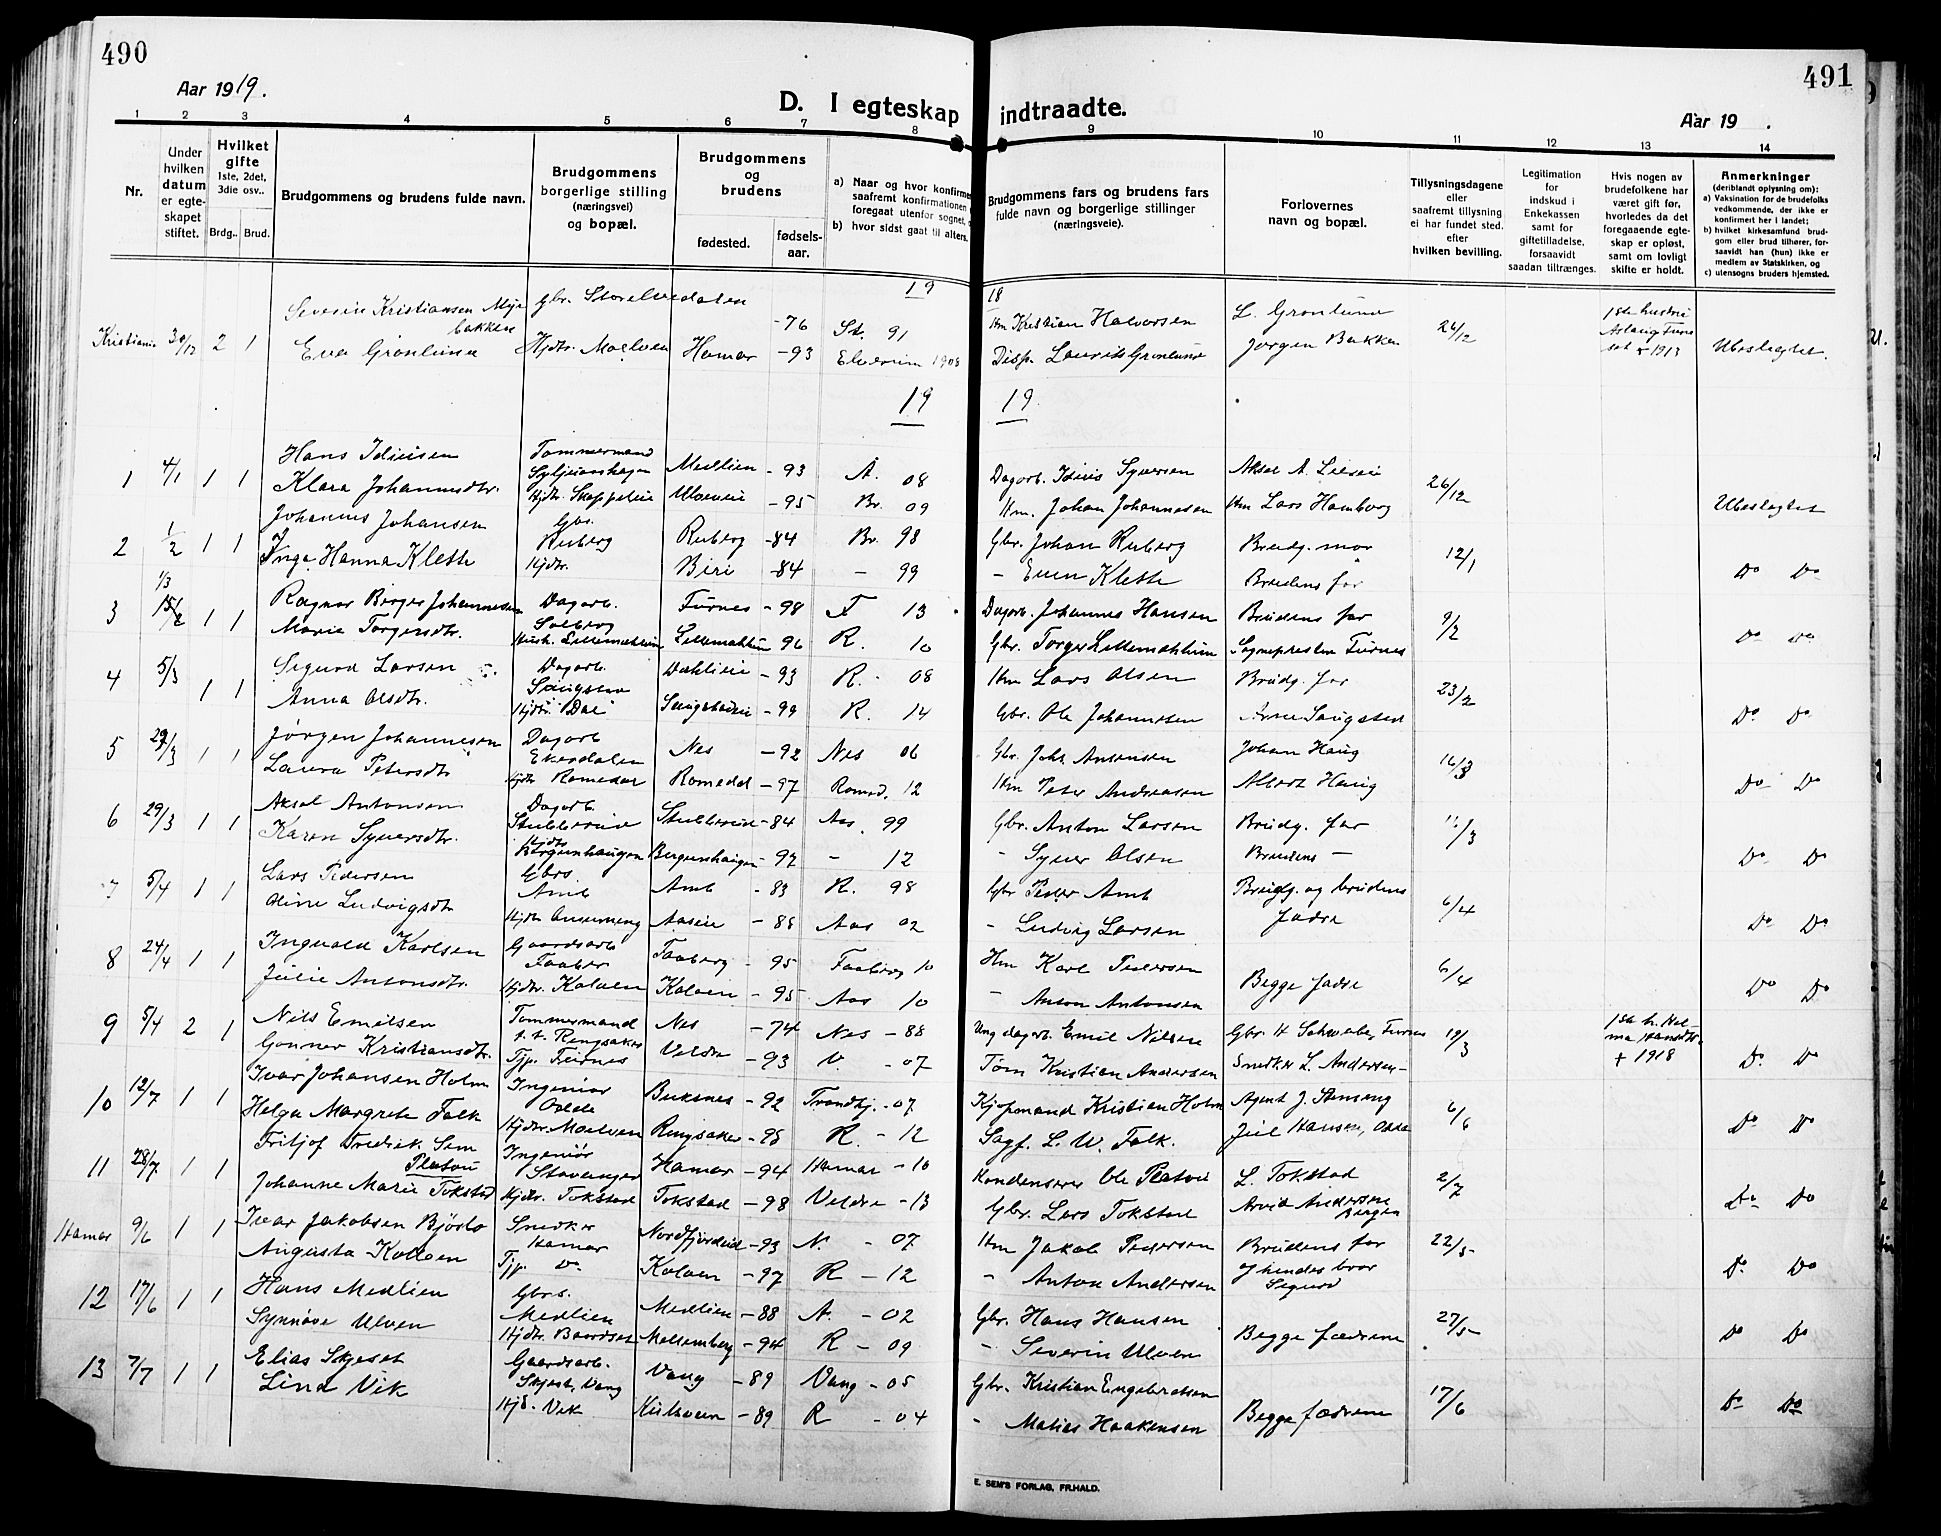 490
491
Aar 1919.
D. I egteskap indtraadte.
Aar 19 .
1 2 3 4 5 6 7 8 9 10 11 12 13 14
Nr.
Under hvilken datum er egteskapet stiftet.
Hvilket gifte 1ste, 2det, 3die osv..
Brdg.. Brud.
Brudgommens og brudens fulde navn.
Brudgommens borgerlige stilling (næringsvei) og bopæl.
Brudgommens og brudens
fødested.
fødsels-aar.
a) Naar og hvor konfirme
saafremt konfirmationen
foregaat utenfor sognet,
b) hvor sidst gaat til alters.
Brudgommens fars og brudens fars fulde navn og borgerlige stillinger (næringsveie).
Forlovernes navn og bopæl.
Tillysningsdagene eller saafremt tillysning ei har fundet sted. efter hvilken bevilling.
Legitimation for indskud i Enkekassen samt for giftetilladelse, forsaavidt saadan tiltrænges.
Hvis nogen av brudefolkene har været gift før, hvorledes da det foregaaende egteskap er opløst, samt om lovligt skifte er holdt.
Anmerkninger
(deriblandt oplysning om):
a) Vaksination for de brudefolks vedkommende, der ikke er konfirmert her i landet;
b) hvilket kirkesamfund brudgom eller brud tilhører, forsaavidt han (hun) ikke er medlem av Statskirken, og
c) utensogns bruders hjemsted.
19 18
Severin Kristiansen Myrbakken Gbr. Storelvedalen -76 St. 91 Hm Kristian Halvorsen L. Grønlund
Kristiania 30/12 2 1 24/12 1ste hustru 1913 Ubeslegtet.
Eva Grønlund Hjdtr. Moelven Hamar -93 Elverum 1908 Disp. Laurits Grønlund Jørgen Bakken
19 19.
1 4/1 1 1 Hans Idiusen Tømmermand Medlien -93 A. 08 Dagarb. Idius Syversen Aksel A. 26/12
Klara Johannesdtr. Hjdtr. -95 Br. 09 Hm. Johan Johannesen Hm Lars Hamborg Ubeslegtet
2 1/2 1 1 Johannes Johansen Gbr. Ruberg Ruberg -84 Br. 98 Gbr. Johan Ruberg Brudg. mor 12/1
Inga Hanna Klette Hjdtr. Biri -84 - 99 - Even Klette Brudens far Do Do
3 1/3 1 1 Ragnar Birger Johannessen Dagarb. Solberg Furnes -98 F 13 Dagarb. Johannes Hansen Brudens far 9/2
Marie Torgersdtr. Lillemæhlum 96 R. 10 Gbr. Torger Lillemæhlum Sognepresten Furnes Do Do
4 5/3 1 1 Sigurd Larsen Dagarb. Saugstad Dæhlien -93 R. 08 Hm Lars Olsen Brudg. far 23/2
Anna Olsdtr. Hjdtr. Dal -99 R. 14 Gbr. Ole Johannesen Arne Saugstad Do Do
5 29/3 1 1 Jørgen Johannesen Dagarb. Nes -92 Nes 06 Gbr. Johs Johan Haug 16/3
Laura Petersdtr Hjdtr Romedal Romedal -97 Romed. 12 Hm Peter Andreasen Albert Haug Do Do
6 29/3 1 1 Aksel Antonsen Dagarb. Stubberud Stubberud -84 Aas 99 Gbr. Anton Larsen Brudg. far 16/3
Karen Syversdtr. Hjdtr Bergenhaugen Bergenhaugen -92 - 12 - Syver Olsen Brudens - Do Do
7 5/4 1 1 Lars Pedersen Gbrs. Amb Amb -83 R. 98 Gbr Peder Amb Brudg. og brudens fædre 6/4
Oline Ludvigsdtr Hjdtr Aasen -88 Aas 02 - Ludvig Larsen Do Do
8 24/4 1 1 Ingvald Karlsen Gaardsarb Faaberg Faaberg -95 Faaberg 10 Hm Karl Pedersen Begge fædre 6/4
Julie Antonsdtr. Hjdtr. Koloen Koloen -95 Aas 10 - Anton Antonsen Do Do
9 5/4 2 1 Nils Emilsen Tømmermand f. t. Ringsaker Nes -74 Nes -88 Ung dagarb. Emil Nilsen Gbr. H Schwabe, Furnes 19/3 1ste h. Helma Hansdtr. + 1918
Gonner Kristiansdtr. Tjp. Furnes Veldre -93 V. -07 Tøm Kristian Andersen Snedker L. Andersen - Do Do
10 12/7 1 1 Ivar Johansen Holm Ingeniør Odde Buksnes -92 Trondhj. -07 Kjøpmand Kristian Holm Agent J. Stenseng 6/6
Helga Margrete Falk Hjdtr. Moelven Ringsaker -95 R. -12 Sagf. L. W. Falk. Juul Hansen, Odde Do Do
11 28/7 1 1 Fritjof Fredrik Sem Platou Ingeniør Stavanger Hamar -94 Hamar -10 Kondenserer Ole Platou L. Tokstad 2/7
Johanne Marie Tokstad Hjdtr. Tokstad Tokstad -98 Veldre -13 Gbr. Lars Tokstad Arvid Andersen Bergen Do Do
Hamar 9/6 1 1 Ivar Jakobsen Bjørlo Snedker Hamar Nordfjordeid -93 N. -07 Hm Jakob Pedersen Brudens far 22/5
Augusta Koloen Tjp. Do Koloen -97 R -12 - Anton Andersen og hendes bror Sigurd Do Do
12 17/6 1 1 Hans Medlien Gbrs. Medlien Medlien -88 A. -02 Gbr. Hans Hansen Begge fædrene 27/5
Synnøve Ulven Hjdtr. Baardset -94 R -09 - Severin Ulven Do Do
13 7/7 1 1 Elias Skjeset Gaardsarb. Skjeset, Vang Vang -89 Vang -05 Gbr. Kristian Engebretsen Begge fædrene 17/6
Lina Vik Hjd. Vik -89 R -04 - Matias Haakensen Do Do
E. SEM'S FORLAG, FR.HALD.